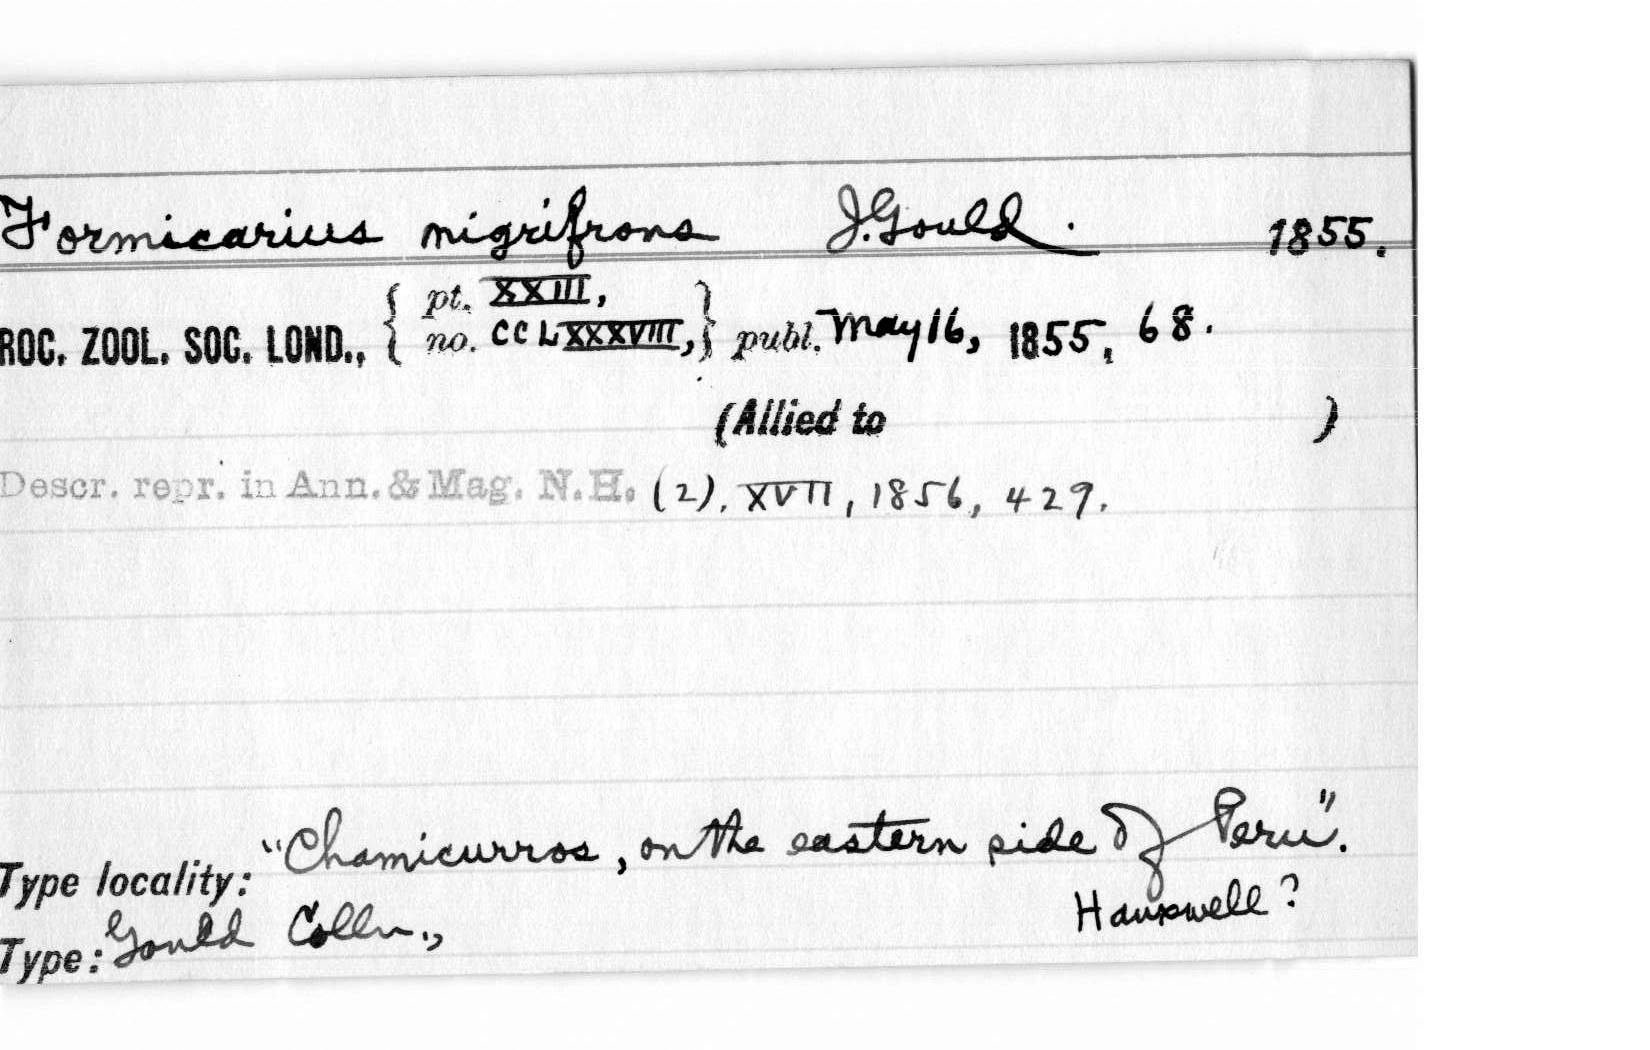 Formicarius nigrifrons J. Gould. 1855.
ROC. ZOOL. SOC. LOND., { pt. XXIII, no. CCLXXXVIII, } publ. May 16, 1855, 68.
(Allied to )
Descr. repr. in Ann. & Mag. N.H. (2), XVII, 1856, 429.
Type locality: "Chamicurros, on the eastern side of Peru".
Hauxwell?
Type: Gould Colln.,